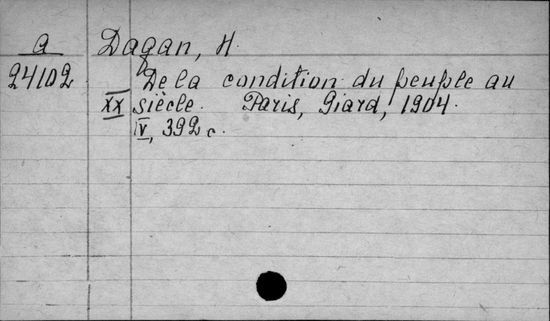 a Dagan, H.
24102 De la condition du peuple au
XX siècle. Paris, Giard, 1904.
IV, 392 c.